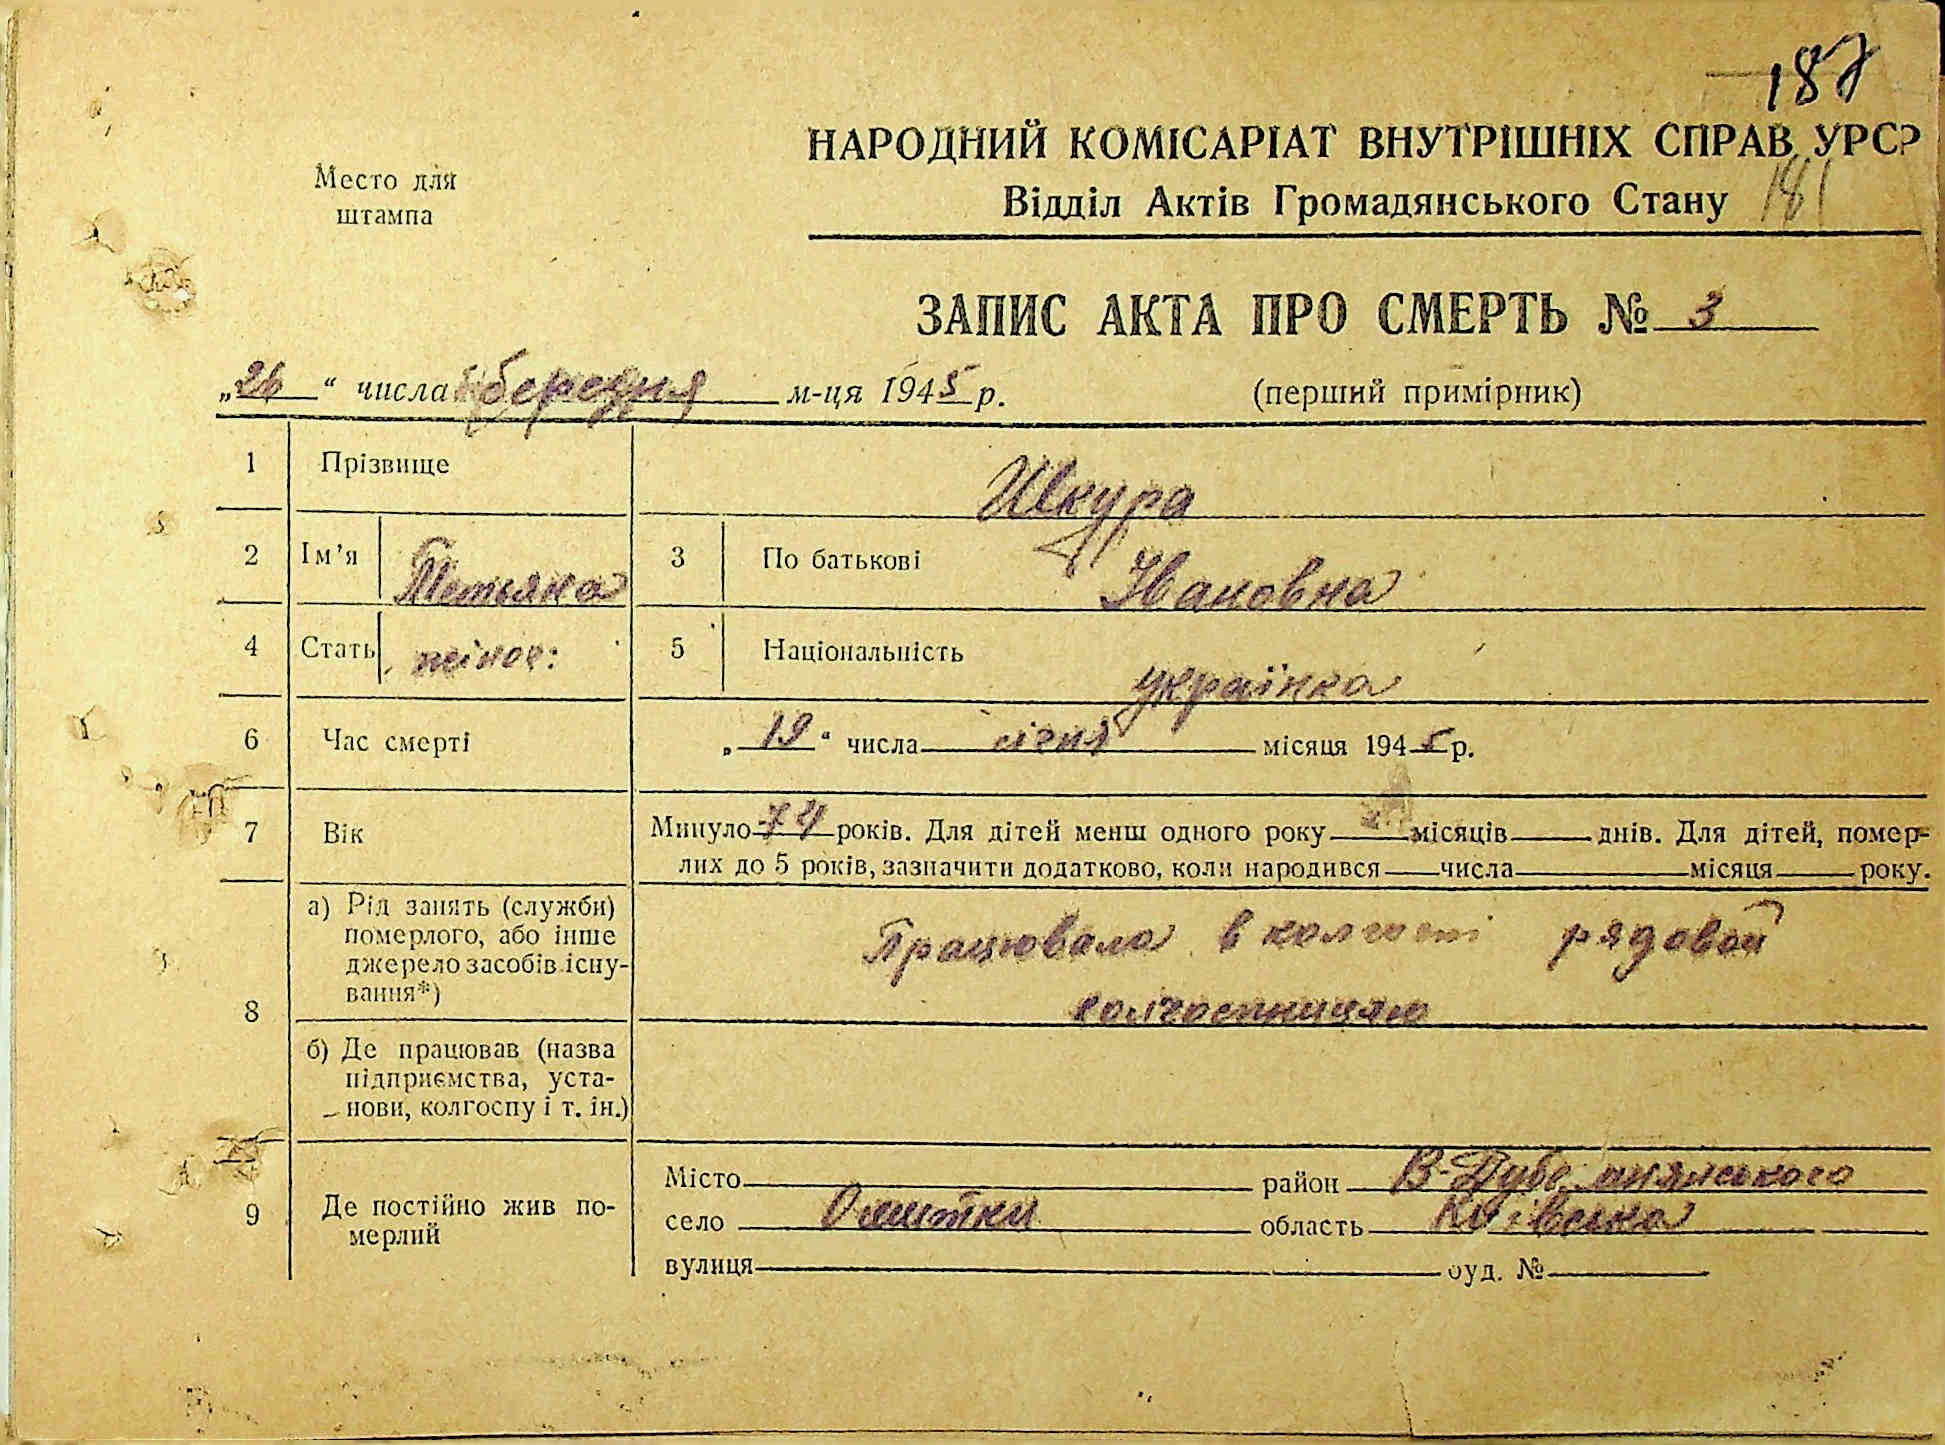 187
НАРОДНИЙ КОМІСАРІАТ ВНУТРІШНІХ СПРАВ УРСР
Место для штампа
Відділ Актів Громадянського Стану 181
ЗАПИС АКТА ПРО СМЕРТЬ № 3
„26“ числа березня м-ця 1945 р. (перший примірник)
1 Прізвище Шкура
2 Ім’я Тетьяна 3 По батькові Івановна
4 Стать жіноч: 5 Національність українка
6 Час смерті „19“ числа січня місяця 1945 р.
7 Вік Минуло 74 років. Для дітей менш одного року місяців днів. Для дітей, помер-
лих до 5 років, зазначити додатково, коли народився числа місяця року.
8 а) Рід занять (служби)
померлого, або інше
джерело засобів існу-
вання*)
Працювала в колгоспі рядовой
колгоспницяю
б) Де працював (назва
підприємства, уста-
нови, колгоспу і т. ін.)
9 Де постійно жив по-
мерлий
Місто район В-Дубечнянського
село Ошитки область Київська
вулиця буд. №